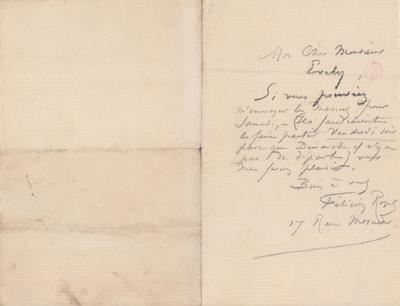 Mon Cher Monsieur
Evely,
Si vous pouviez
m'envoyer les menus pour
Samedi, – (Ils faudrait
les faire partir Vendredi soir
parceque Dimanche il n'y a
pas de départ) vous
me ferez plaisir.
Bien à vous
Félicien Rops
17 Rue Mosnier